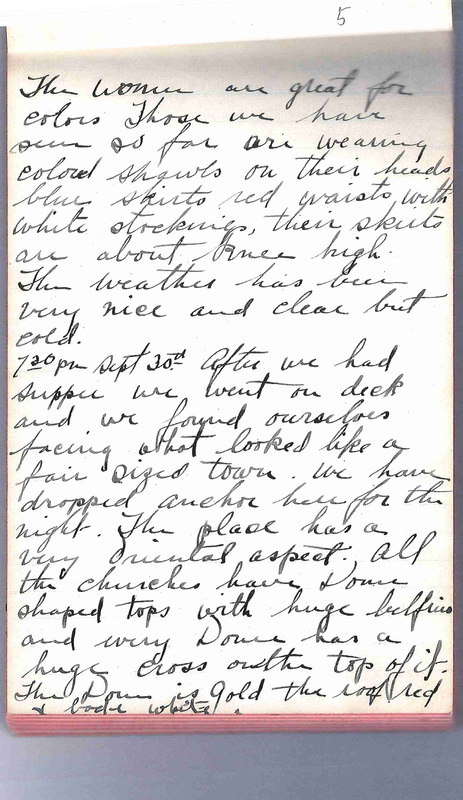 5
The women are great for
colors Those we have
seen so far are wearing
colored shawls on their heads
blue skirts red waists, with
white stockings, their skirts
are about knee high.
The weather has been
very nice and clear but
cold.
7 30 pm Sept 30th After we had
supper we went on deck
and we found ourselves
facing what looked like a
fair sized town. We have
dropped anchor here for the
night. The place has a
very Oriental aspect. All
the churches have Dome
shaped tops with huge belfries
and every Dome has a
huge cross on the top of it.
The Dome is Gold the roof red
& body white.